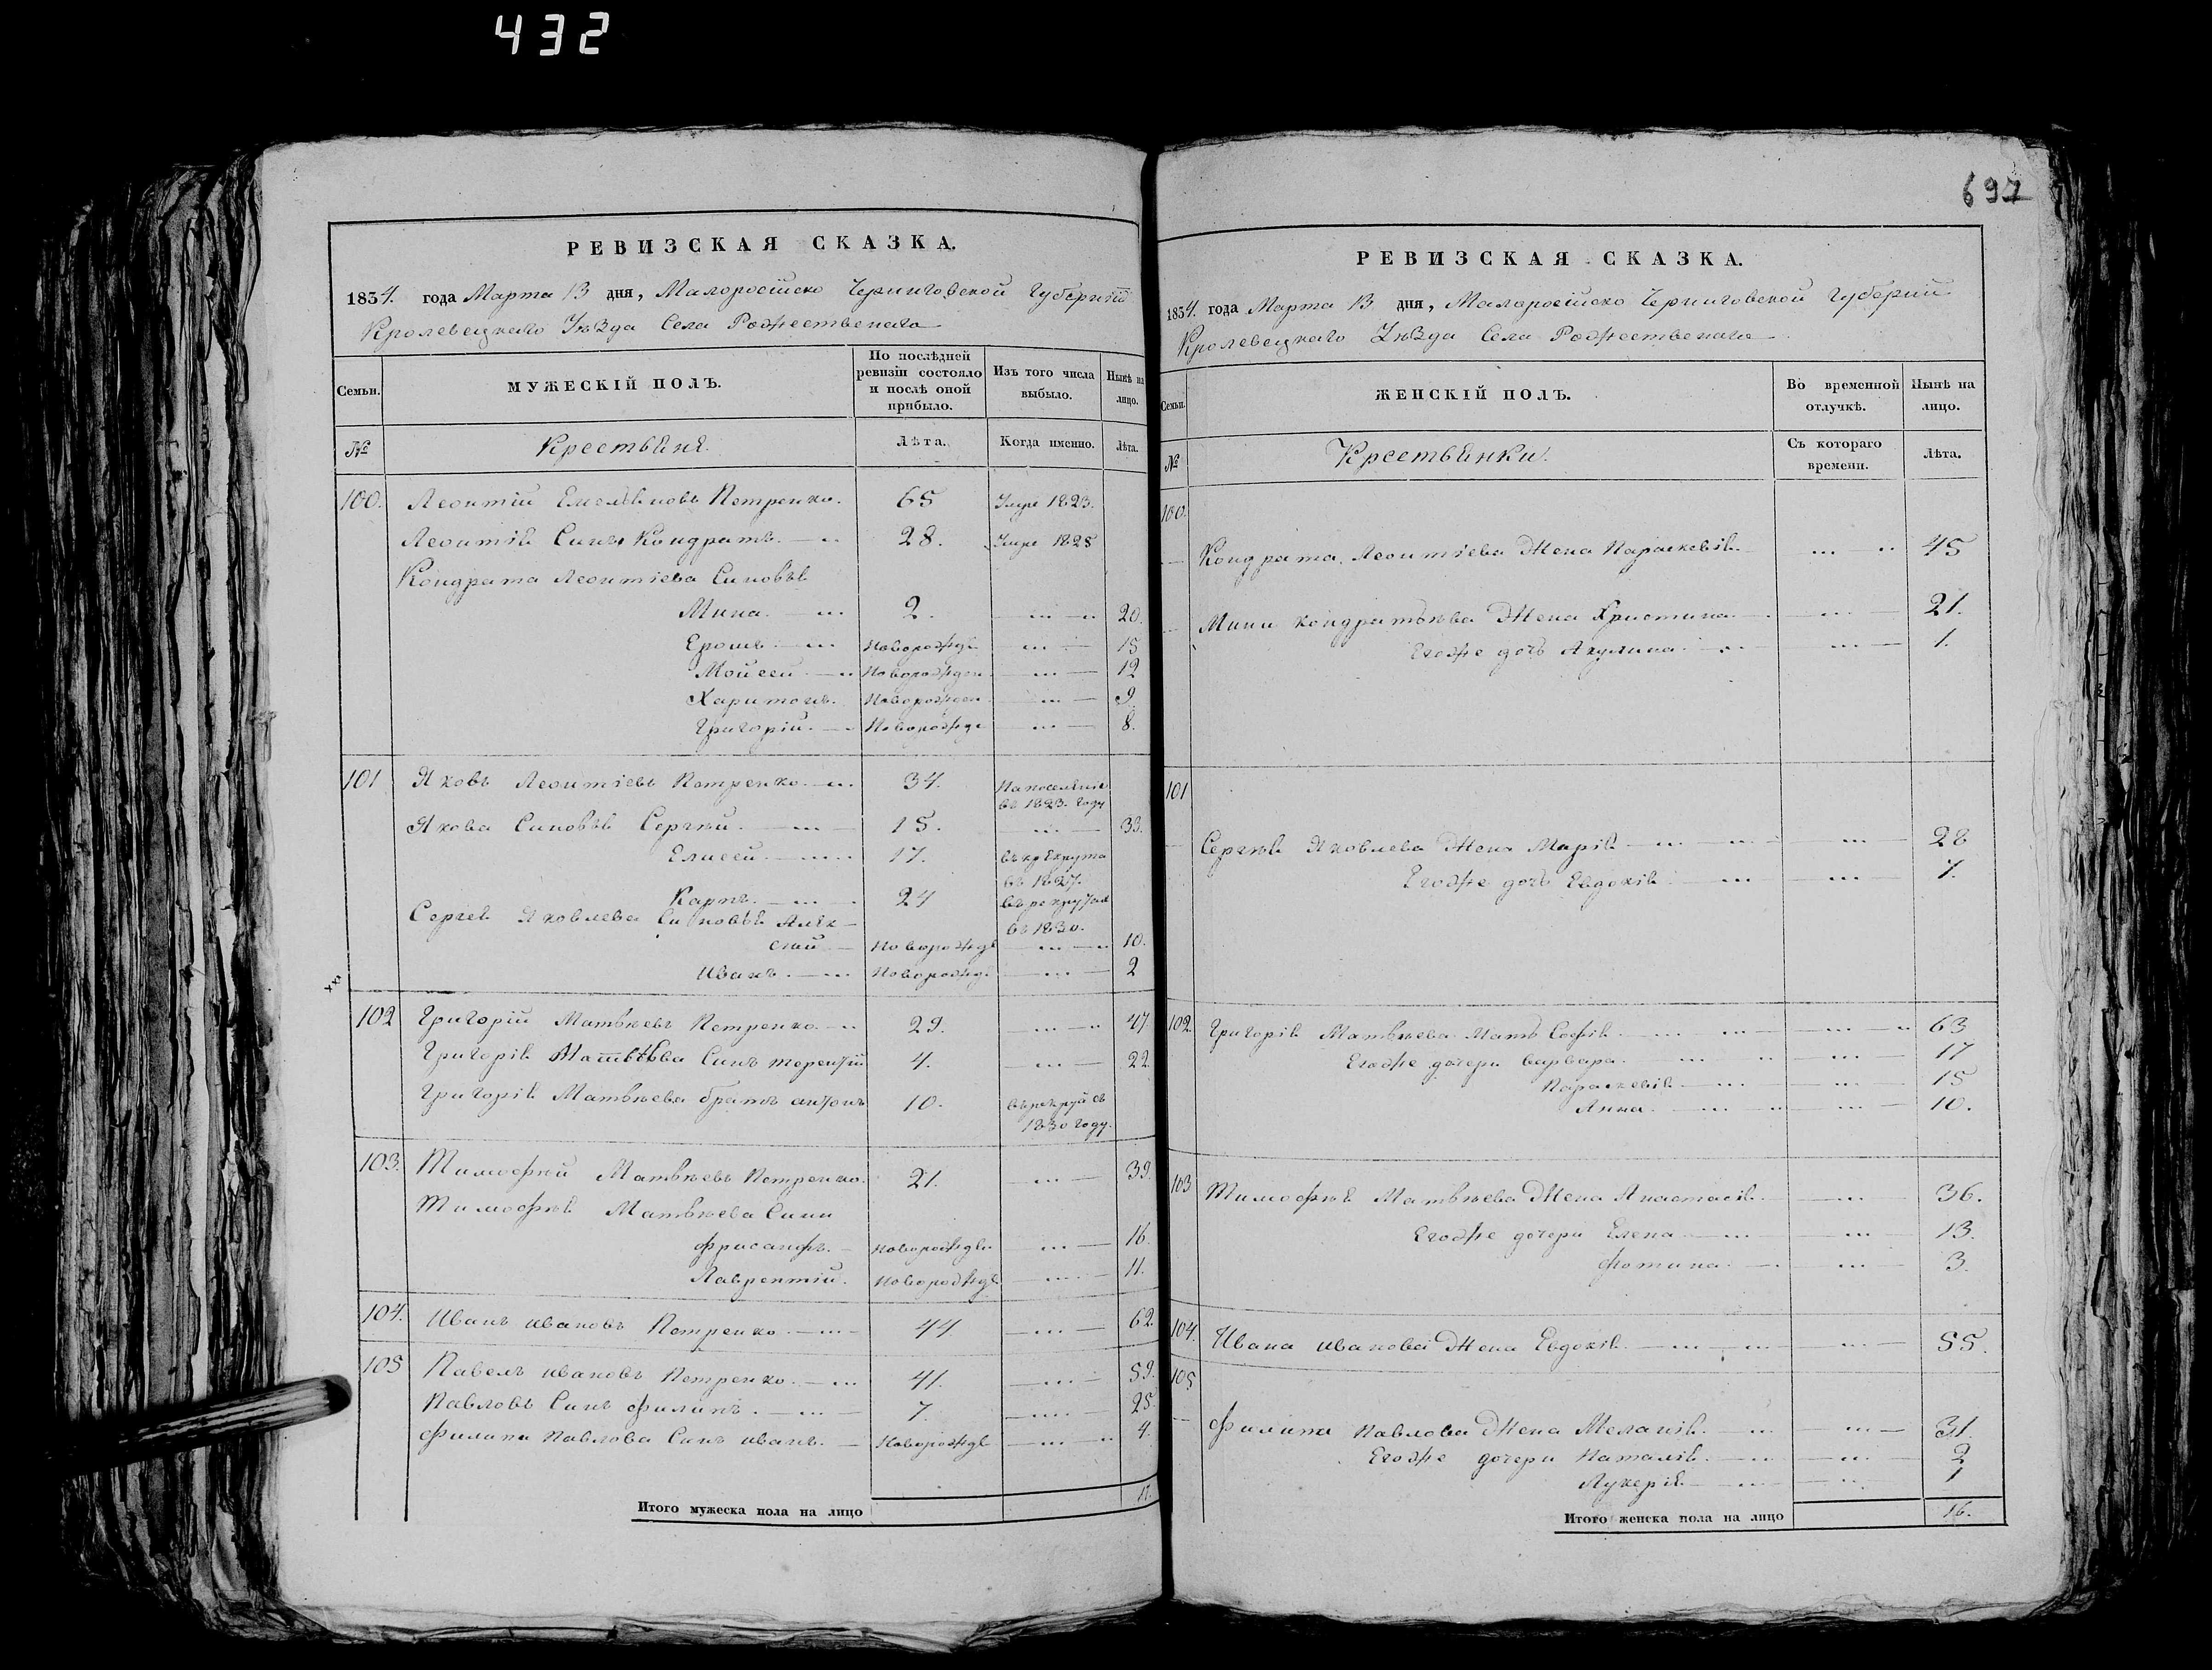 432
697
РЕВИЗСКАЯ СКАЗКА.
1834. года Марта 13 дня, Малоросійско Черниговской Губерніи
Кролевецкаго Уѣзда Села Рождественаго
Семьи. МУЖЕСКІЙ ПОЛЪ. По послѣдней ревизіи состояло и послѣ оной прибыло. Изъ того числа выбыло. Нынѣ на лицо.
№ Крестьяне. Лѣта. Когда именно. Лѣта.
100. Леонтій Емельяновъ Петренко. 65 Умре 1823.
Леонтія Синъ Кондратъ. 28. Умре 1825
Кондрата Леонтіева Синовья
Мина. 2. 20.
Ерошъ. Новорожде 15
Мойсей Новорожден 12
Харитонъ. Новорожден 9
Григорій. Новорожде 8.
101 Яковъ Леонтіевъ Петренко 34. На поселеніе
въ 1823. году
Якова Синовья Сергѣй. 15. 33.
Елисей 17. въ
въ 1827.
Карпъ. 24 въ рекрута
въ 1830.
Сергея Яковлева Синовья Алек-
сѣй Новорожде 10.
Иванъ. Новорожде 2
102 Григорій Матвѣевъ Петренко 29. 47
Григорія Матвѣева Синъ терентій 4. 22.
Григорія Матвѣева братъ антонъ 10.
1830 году.
103. Тимофѣй Матвѣевъ Петренко. 21. 39.
Тимофѣя Матвѣева Сини
фрисанфъ. Новорожден 16.
Лаврентій. Новорожде 11.
104. Иванъ ивановъ Петренко 44 62.
105 Павелъ ивановъ Петренко 41. 59.
Павловъ Синъ филипъ. 7. 25.
филипа Павлова Синъ иванъ. Новорожде 4.
Итого мужеска пола на лицо 17.
РЕВИЗСКАЯ СКАЗКА.
1834. года Марта 13 дня, Малоросійско Черниговской Губерніи
Кролевецкаго Уѣзда Села Рождественаго
Семьи. ЖЕНСКІЙ ПОЛЪ. Во временной отлучкѣ. Нынѣ на лицо.
№ Крестьянки. Съ котораго времени. Лѣта.
100.
Кондрата Леонтіева Жена Параскевія 45
Мини кондратѣева Жена Христина 21.
Егоже дочь Акулина. 1.
101
Сергѣя Яковлева Жена Марія 28
Егоже дочь Евдокія 7.
102. Григорія Матвѣева Мать Софія 63
Егоже дочери варвара. 17
Параскевія 15
Анна. 10.
103 Тимофѣя Матвѣева Жена Анастасія 36.
Егоже дочери Елена 13.
фотина. 3.
104. Ивана иванова Жена Евдокія. 55.
105
филипа Павлова Жена Меланія. 31.
Егоже дочери Наталія. 2
Лукерія 1
Итого женска пола на лицо 16.